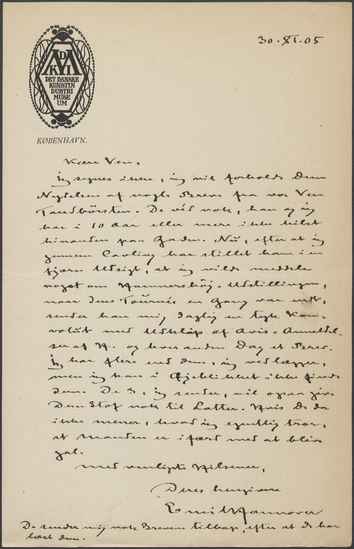 DK
KI
DET DANSKE
KUNSTIN
DUSTRI
MUSE
UM
KØBENHAVN.
30.XI.05
Kære Ven,
Jeg synes ikke, jeg vil forholde Dem
Nydelsen af nogle Breve fra vor Ven
Tandbørsten. De véd nok, han og jeg
har i 10 Aar eller mere ikke hilst
hinanden paa Gaden. Nu, efter at jeg
gennem Carling har stillet ham i en
fjern Udsigt, at jeg vilde meddele
noget om Hammershøj Udstillingen,
naar dens Tournée en Gang var endt,
sender han mig daglig en tyk Kon-
volut med Udklip af Avis-Anmeldel-
ser af H. og hver anden Dag et Brev.
Jeg har flere end dem, jeg vedlægger,
men jeg kan i Øjeblikket ikke finde
dem. De 3, jeg sender, vil ogsaa give
Dem Stof nok til Latter. Hvis De da
ikke mener, hvad jeg egentlig tror,
at Manden er i færd med at blive
gal.
Med venligste Hilsener,
Deres hengivne
Emil Hannover
De sender mig nok Brevene tilbage, efter at De har
læst dem.